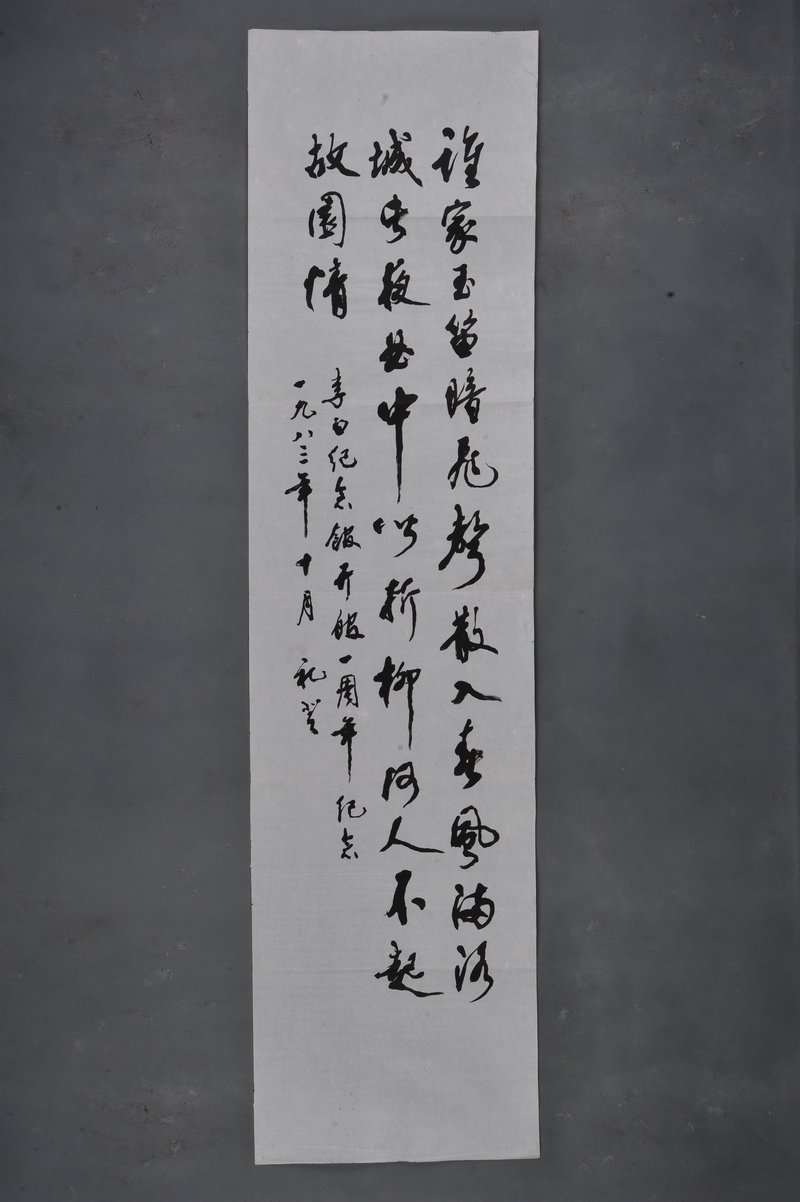 誰家玉笛暗飛聲散入春風滿洛
城此夜曲中聞折柳何人不起
故園情
李白纪念馆开馆一周年纪念
一九八三年十月